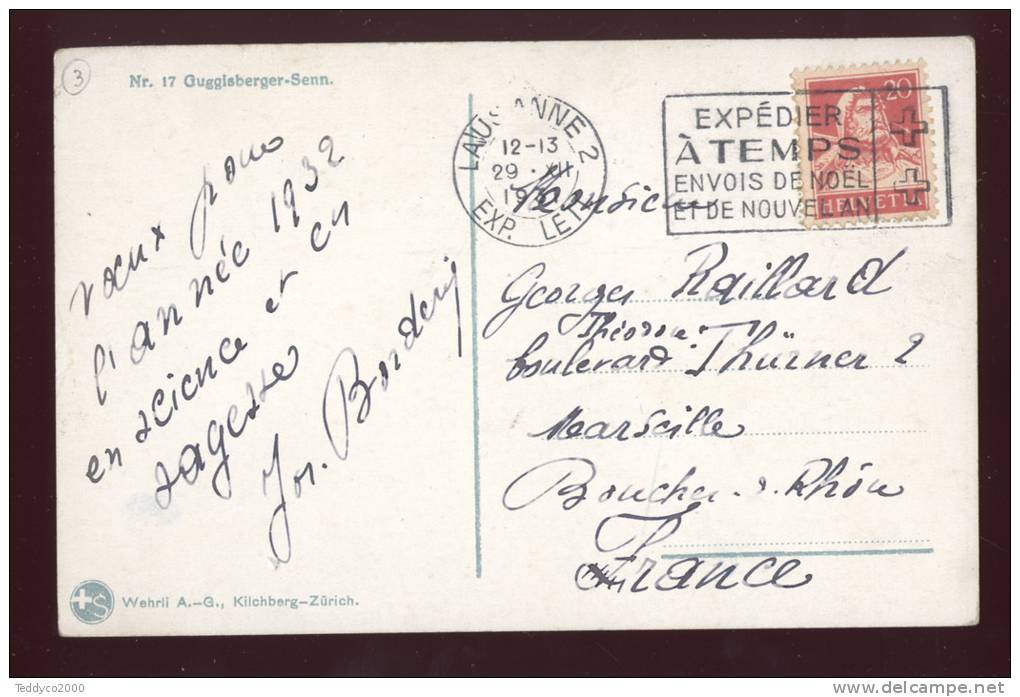 3
Nr. 17 Guggisberger-Senn.
vœux pour
l'année 1932
en science et en
sagesse
Jos.
LAUSANNE 2
12-13
29 · XII
EXP. LET
EXPÉDIER
À TEMPS
ENVOIS DE NOËL
ET DE NOUVEL AN
20
HELVETIA
Monsieur
Georges Raillard
Théodore
boulevard Thürner 2
Marseille
Bouches-d-Rhône
France
Wehrli A.-G., Kilchberg-Zürich.
Teddyco2000
www.delcampe.net